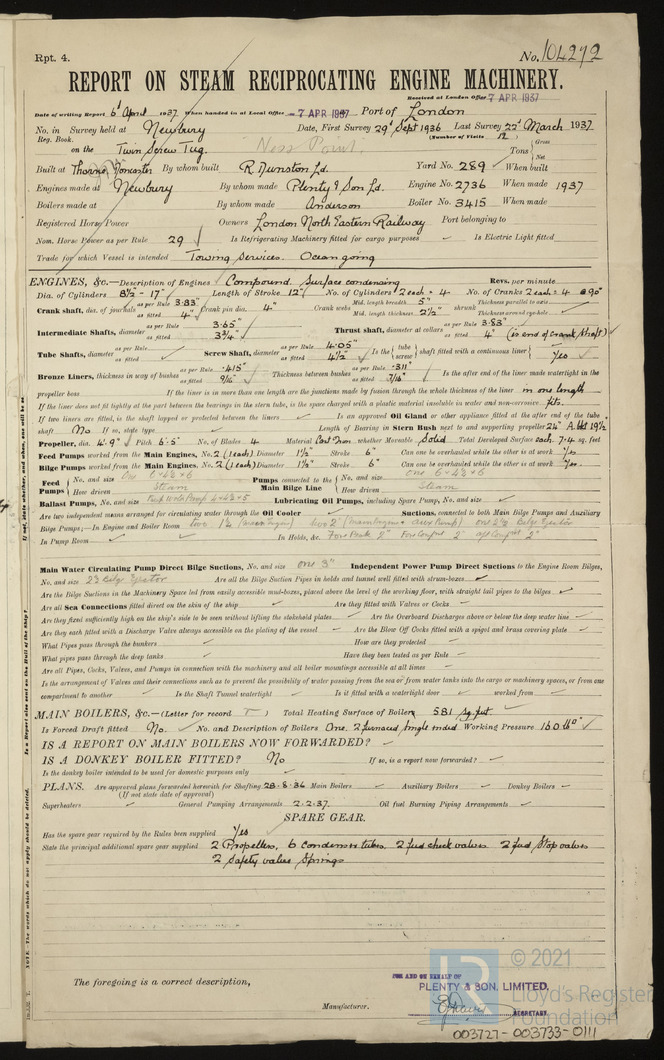 Rpt. 4. No. 104272
REPORT ON STEAM RECIPROCATING ENGINE MACHINERY.
Received at London Office 7 APR 1937
Date of writing Report 6th April 1937 When handed in at Local Office - 7 APR 1937 Port of London
No. in Reg. Book. Survey held at Newbury Date, First Survey 29th Sept 1936 Last Survey 22nd March 1937
(Number of Visits 12
on the Twin Screw Tug. Ness Point. Tons Gross Net
Built at Thorne, Doncaster By whom built R Dunston Ld. Yard No. 289 When built
Engines made at Newbury By whom made Plenty & Son Ld. Engine No. 2736 When made 1937
Boilers made at By whom made Anderson Boiler No. 3415 When made
Registered Horse Power Owners London North Eastern Railway Port belonging to
Nom. Horse Power as per Rule 29 Is Refrigerating Machinery fitted for cargo purposes Is Electric Light fitted
Trade for which Vessel is intended Towing Services. Ocean going
ENGINES, &c.—Description of Engines Compound Surface condensing Revs. per minute
Dia. of Cylinders 8½" - 17" Length of Stroke 12" No. of Cylinders 2 each = 4 No. of Cranks 2 each = 4 @ 90°
Crank shaft, dia. of journals as per Rule 3.83" as fitted 4" Crank pin dia. 4" Crank webs Mid. length breadth 5" Mid. length thickness 2½" shrunk Thickness parallel to axis Thickness around eye-hole
Intermediate Shafts, diameter as per Rule 3.65" as fitted 3¾" Thrust shaft, diameter at collars as per Rule 3.83" as fitted 4" (is end of crank shaft)
Tube Shafts, diameter as per Rule as fitted Screw Shaft, diameter as per Rule 4.05" as fitted 4½" Is the tube screw shaft fitted with a continuous liner Yes
Bronze Liners, thickness in way of bushes as per Rule .415" as fitted 9/16" Thickness between bushes as per Rule .311" as fitted 7/16" Is the after end of the liner made watertight in the
propeller boss If the liner is in more than one length are the junctions made by fusion through the whole thickness of the liner in one length
If the liner does not fit tightly at the part between the bearings in the stern tube, is the space charged with a plastic material insoluble in water and non-corrosive fits.
If two liners are fitted, is the shaft lapped or protected between the liners Is an approved Oil Gland or other appliance fitted at the after end of the tube
shaft No If so, state type Length of Bearing in Stern Bush next to and supporting propeller 24" A.bkt 19½"
Propeller, dia. 4'.9" Pitch 6'.5" No. of Blades 4 Material Cast Iron whether Moveable Solid Total Developed Surface each 7.4 sq. feet
Feed Pumps worked from the Main Engines, No. 2 (1 each) Diameter 1½" Stroke 6" Can one be overhauled while the other is at work Yes.
Bilge Pumps worked from the Main Engines, No. 2 (1 each) Diameter 1½" Stroke 6" Can one be overhauled while the other is at work Yes.
Feed Pumps No. and size One 6×4½×6 How driven Steam Pumps connected to the Main Bilge Line No. and size one 6×4½×6 How driven Steam
Ballast Pumps, No. and size Lubricating Oil Pumps, including Spare Pump, No. and size
Are two independent means arranged for circulating water through the Oil Cooler Suctions, connected to both Main Bilge Pumps and Auxiliary
Bilge Pumps;—In Engine and Boiler Room two 1¼ (Main Engine) two 2" (Main Engine & Aux Pump) one 2½ Bilge Ejector
In Pump Room In Holds, &c. Fore Peak 2" For Compt 2" Aft Compt 2"
Main Water Circulating Pump Direct Bilge Suctions, No. and size one 3" Independent Power Pump Direct Suctions to the Engine Room Bilges,
No. and size 2½ Bilge Ejector Are all the Bilge Suction Pipes in holds and tunnel well fitted with strum-boxes
Are the Bilge Suctions in the Machinery Space led from easily accessible mud-boxes, placed above the level of the working floor, with straight tail pipes to the bilges
Are all Sea Connections fitted direct on the skin of the ship Are they fitted with Valves or Cocks
Are they fixed sufficiently high on the ship's side to be seen without lifting the stokehold plates Are the Overboard Discharges above or below the deep water line
Are they each fitted with a Discharge Valve always accessible on the plating of the vessel Are the Blow Off Cocks fitted with a spigot and brass covering plate
What Pipes pass through the bunkers How are they protected
What pipes pass through the deep tanks Have they been tested as per Rule
Are all Pipes, Cocks, Valves, and Pumps in connection with the machinery and all boiler mountings accessible at all times
Is the arrangement of Valves and their connections such as to prevent the possibility of water passing from the sea or from water tanks into the cargo or machinery spaces, or from one
compartment to another Is the Shaft Tunnel watertight Is it fitted with a watertight door worked from
MAIN BOILERS, &c.—(Letter for record r) Total Heating Surface of Boilers 581 sq. feet
Is Forced Draft fitted No. No. and Description of Boilers One. 2 furnaced single ended Working Pressure 160 lb
IS A REPORT ON MAIN BOILERS NOW FORWARDED?
IS A DONKEY BOILER FITTED? No If so, is a report now forwarded?
Is the donkey boiler intended to be used for domestic purposes only
PLANS. Are approved plans forwarded herewith for Shafting 28-8-36 Main Boilers Auxiliary Boilers Donkey Boilers
(If not state date of approval)
Superheaters General Pumping Arrangements 2.2.37. Oil fuel Burning Piping Arrangements
SPARE GEAR.
Has the spare gear required by the Rules been supplied Yes
State the principal additional spare gear supplied 2 Propellers, 6 condenser tubes, 2 feed check valves 2 feed Stop valves
2 Safety valve Springs
The foregoing is a correct description,
FOR AND ON BEHALF OF
PLENTY & SON, LIMITED.
Manufacturer. SECRETARY.
© 2021
Lloyd's Register
Foundation
003727-003733-0111